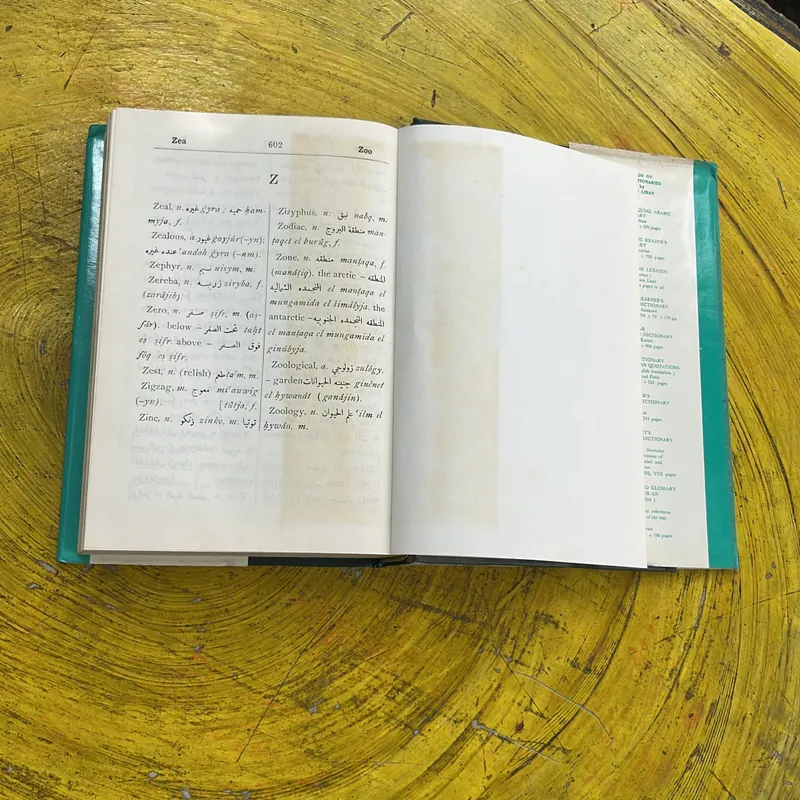 Zea 602 Zoo
Z
Zeal, n. غيره ġyra ; حميه ḥam-
myja, f.
Zealous, a غيور ġayjûr (–yn);
عنده غيره ʿandoh ġyra (–nm).
Zephyr, n. نسيم nisym, m.
Zereba, n. زريبه ziryba, f.
(zardjib).
Zero, n. صفر ṣifr, m. (aṣ-
fâr). below – تحت الصفر taḥt
eṣ ṣifr. above – فوق الصفر
fôq eṣ ṣifr.
Zest, n. (relish) طعم ṭaʿm, m.
Zigzag, m. معوج miʿauwig
(–yn). [tûtja, f.
Zinc, n. زنكو zinko, m. توتيا
Zizyphus, n. نبق nabq, m.
Zodiac, n. منطقة البروج man-
ṭaqet el burûg, f.
Zone, n. منطقه manṭaqa, f.
(manâṭiq). the arctic – المنطقه
المتجمده الشماليه el manṭaqa el
mungamida el šimâlyja. the
antarctic – المنطقه المتجمده الجنوبيه
el manṭaqa el mungamida el
ginûbyja.
Zoological, a. زولوجي zulôgy.
– garden جنينه الحيوانات ginênet
el ḥywanât (gonâjin).
Zoology, n. علم الحيوان ʿilm el
ḥywân, m.
ON OF
CTIONARIES
by
LIBAN
QUIAL ARABIC
ARY
READER'S
ARY
LEXICON
Lane
pages in all
EARNER'S
CTIONARY
Salmoné
DICTIONARY
pages
CTIONARY
AN QUOTATIONS
glish translation )
and Field
pages
ER'S
CTIONARY
pages
T'S
DICTIONARY
VIII pages
D GLOSSARY
R'AN
lish )
al references
of the text
pages